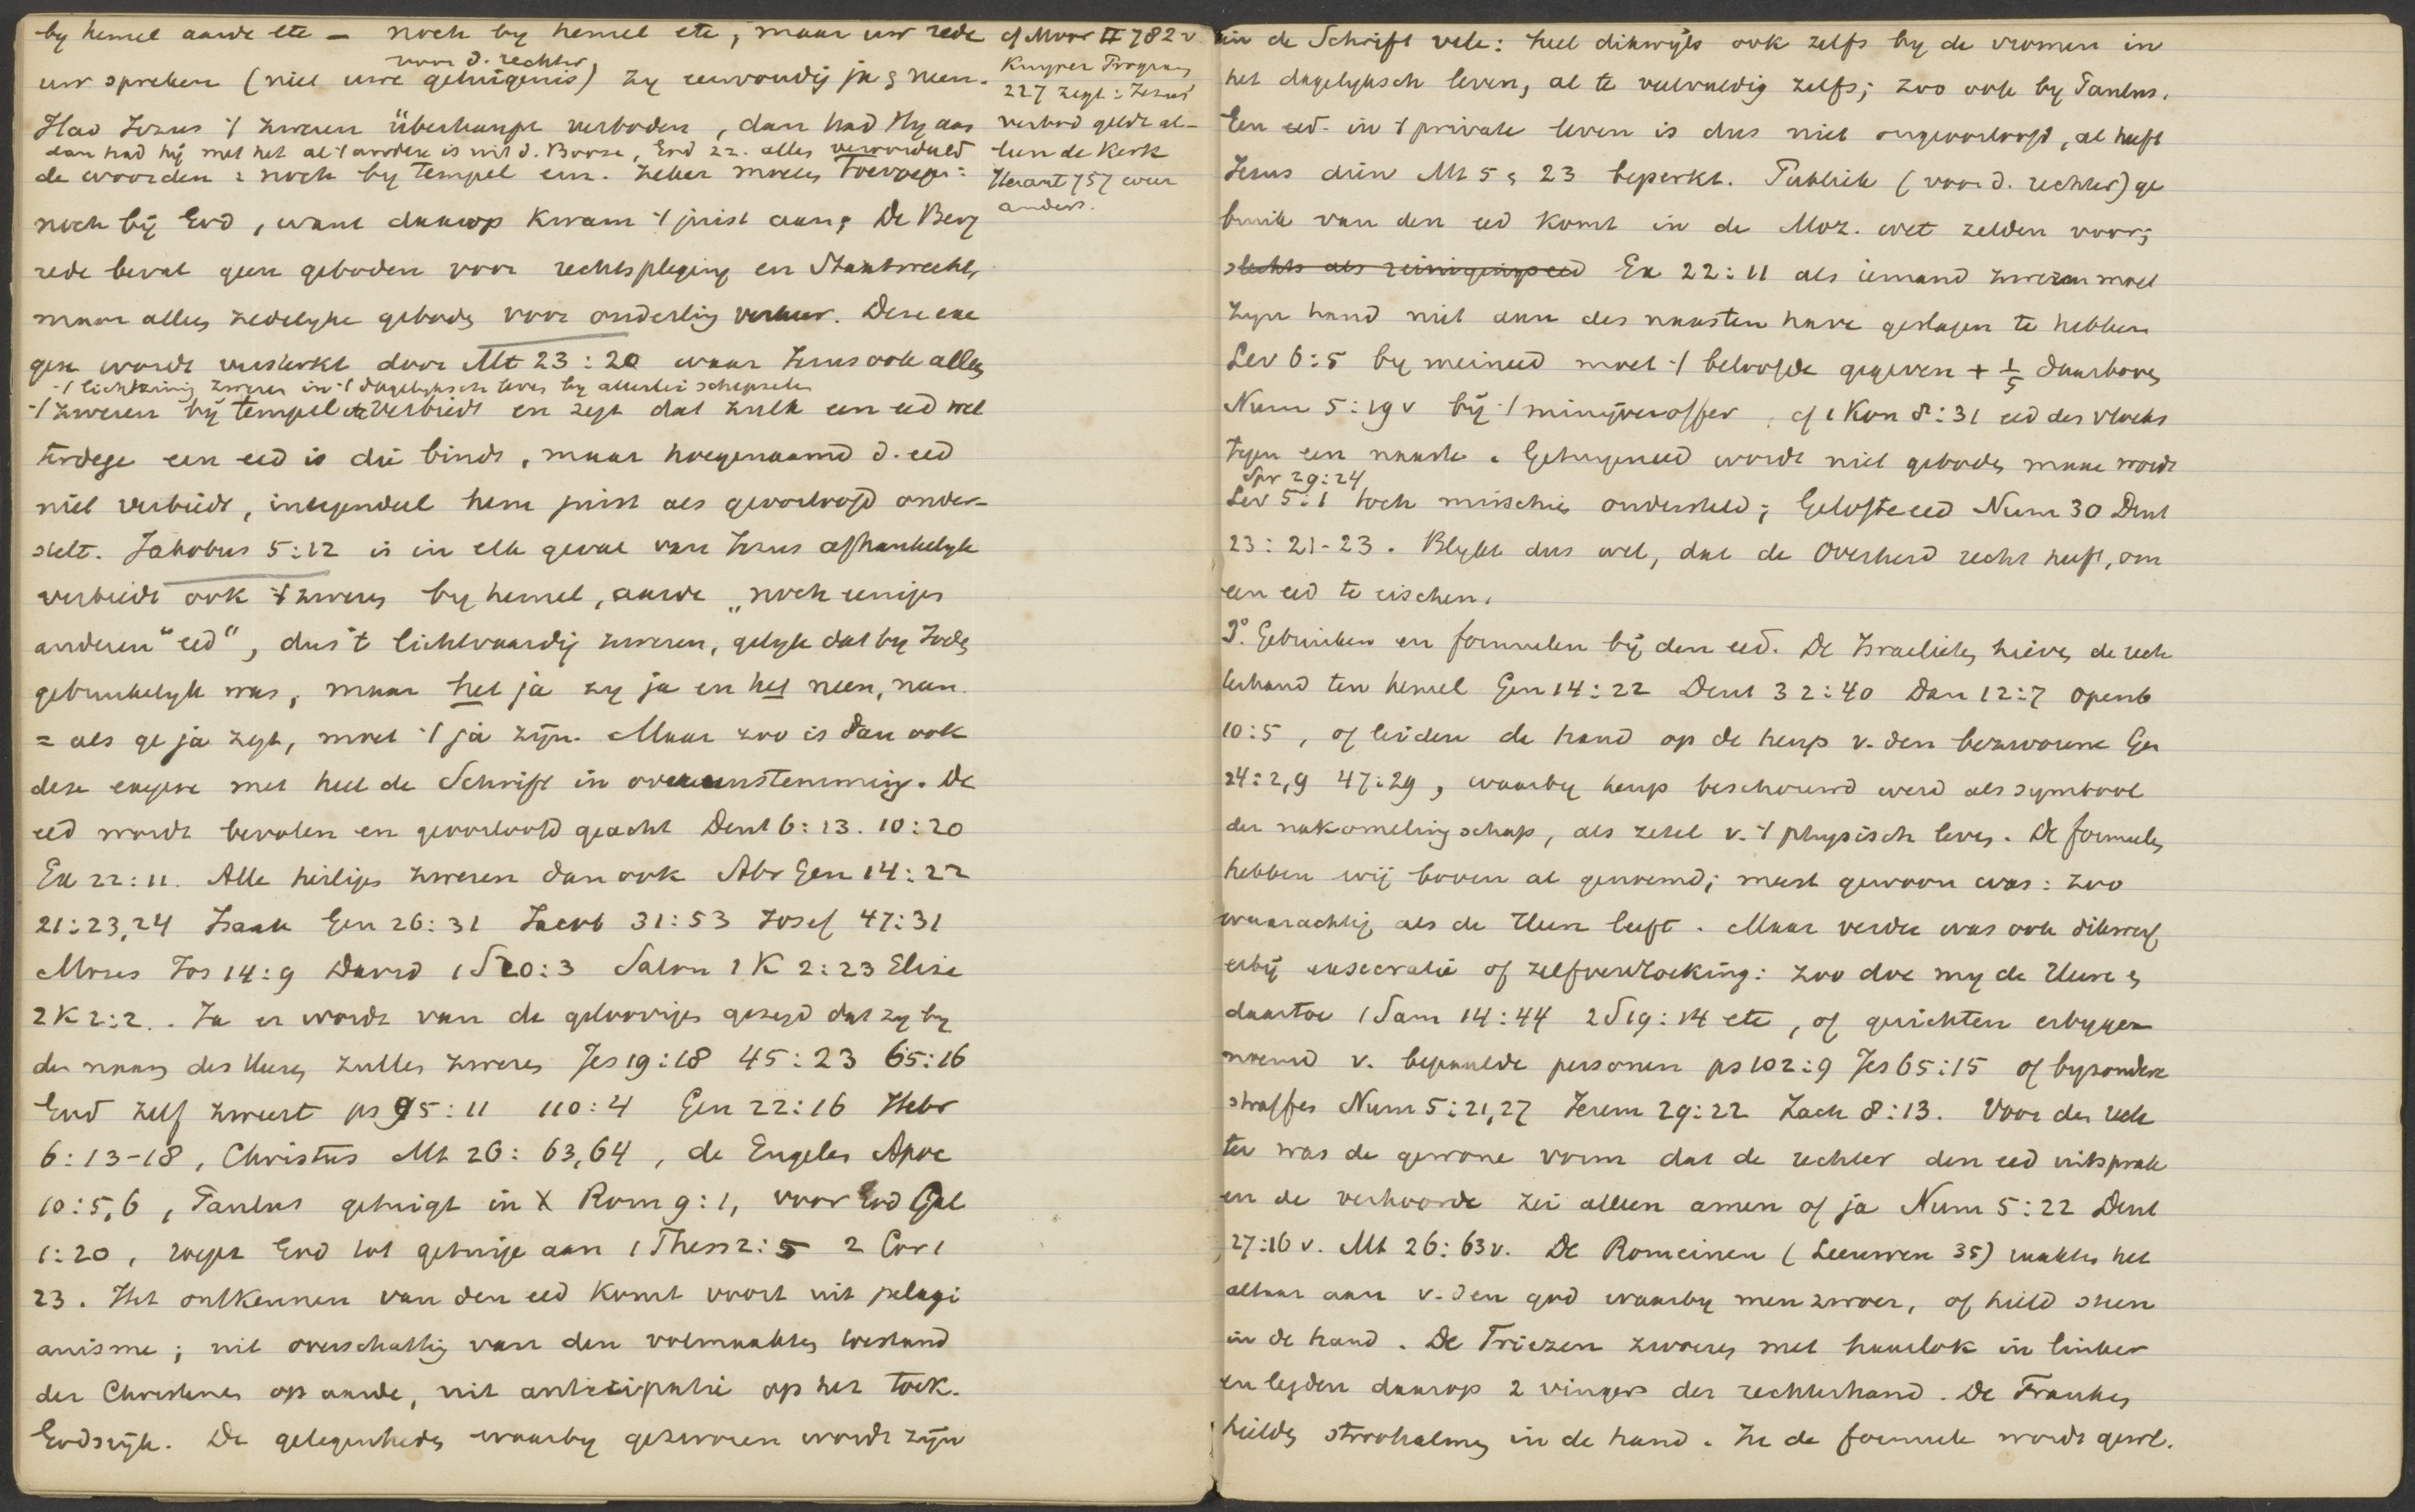 by hemel aarde etc — noch by hemel etc, maar uw rede
voor d. rechter
uw spreken (niet uwe getuigenis) zy eenvoudig ja & neen.
Had Jezus 't zweren überhaupt verboden, dan had Hy aan
dan had hij met het al 't andere is uit d. Booze, God zz. alles veroordeeld
de woorden: noch by tempel enz. zeker moeten toevoegen:
noch bij God, want daarop kwam 't juist aan; De Berg
rede bevat geen geboden voor rechtspleging en Staatsrecht,
maar alleen zedelyke geboden voor onderling verkeer. Deze exe
gese wordt versterkt door Mt 23:20 waar Jezus ook alleen
't lichtzinnig zweren in 't dagelyksch leven by allerlei schepselen
't zweren bij tempel etc verbiedt en zegt dat zulk een eed wel
terdege een eed is die bindt, maar hoegenaamd d. eed
niet verbiedt, integendeel hem juist als geoorloofd onder-
stelt. Jakobus 5:12 is in elk geval van Jezus afhankelyk
verbiedt ook 't zweren by hemel, aarde „noch eenigen
anderen “eed”, dus 't lichtvaardig zweren, gelyk dat by Joden
gebruikelyk was, maar het ja zy ja en het neen, neen.
= als ge ja zegt, moet 't ja zijn. Maar zoo is dan ook
deze exegese met heel de Schrift in overeenstemming. De
eed wordt bevolen en geoorloofd geacht Deut 6:13. 10:20
Ex 22:11. Alle heiligen zweren dan ook Abr Gen 14:22
21:23,24 Izaak Gen 26:31 Jacob 31:53 Jozef 47:31
Mozes Jos 14:9 David 1 S 20:3 Salom 1 K 2:23 Elisa
2 K 2:2. . Ja er wordt van de geloovigen gezegd dat zy by
den naam des Heeren zullen zweren Jes 19:18 45:23 65:16
God zelf zweert ps 95:11 110:4 Gen 22:16 Hebr
6:13-18, Christus Mt 26:63,64, de Engelen Apoc
10:5,6, Paulus getuigt in X Rom 9:1, voor God Gal
1:20, roept God tot getuige aan 1 Thess 2:5 2 Cor 1
23. Het ontkennen van den eed komt voort uit pelagi
anisme; uit overschatting van den volmaakten toestand
der Christenen op aarde, uit anticipatie op het toek.
Godsrijk. De gelegenheden waarby gezworen wordt zijn
cf Moor II 782 v.
Kuyper Program
227 zegt: Jezus'
verbod geldt al-
leen de Kerk
Heraut 757 weer
anders.
in de Schrift vele: heel dikwijls ook zelfs by de vromen in
het dagelyksch leven, al te veelvuldig zelfs; zoo ook by Paulus.
Een eed in 't private leven is dus niet ongeoorloofd, al heeft
Jezus dien Mt 5 & 23 beperkt. Publiek (voor d. rechter) ge
bruik van den eed komt in de Moz. wet zelden voor;
slechts als reinigingseed Ex 22:11 als iemand zweren moet
zyn hand niet aan des naasten have geslagen te hebben
Lev 6:5 by meineed moet 't beloofde gegeven + 1/5 daarboven
Num 5:19 v bij 't minijveroffer, cf 1 Kon 8:31 eed des vloeks
tegen een naaste. Getuigeneed wordt niet geboden maar wordt
Spr 29:24
Lev 5:1 toch misschien ondersteld; Gelofteeed Num 30 Deut
23:21-23. Blykt dus wel, dat de Overheid recht heeft, om
een eed te eischen.
3° Gebruiken en formulen bij den eed. De Israelieten hieven de rech
terhand ten hemel Gen 14:22 Deut 32:40 Dan 12:7 Openb
10:5, of leiden de hand op de heup v. den bezworene Gen
24:2,9 47:29, waarby heup beschouwd werd als symbool
der nakomelingschap, als zetel v. 't physisch leven. De formulen
hebben wij boven al genoemd; meest gewoon was: zoo
waarachtig als de Heer leeft. Maar verder was ook dikwerf
erbij execratie of zelfvervloeking: zoo doe my de Heere &
daartoe 1 Sam 14:44 2 S 19:14 etc, of gerichten erbygen
noemd v. bepaalde personen ps 102:9 Jes 65:15 of byzondere
straffen Num 5:21,27 Jerem 29:22 Zach 8:13. Voor den rech
ter was de gewone vorm dat de rechter den eed uitsprak
en de verhoorde zei alleen amen of ja Num 5:22 Deut
27:16 v. Mt 26:63 v. De Romeinen (Leeuwen 35) raakten het
altaar aan v. den god waarby men zwoer, of hield steen
in de hand. De Friezen zwoeren met haarlok in linker
en legden daarop 2 vingers der rechterhand. De Franken
hielden stroohalmen in de hand. In de formule wordt gew.